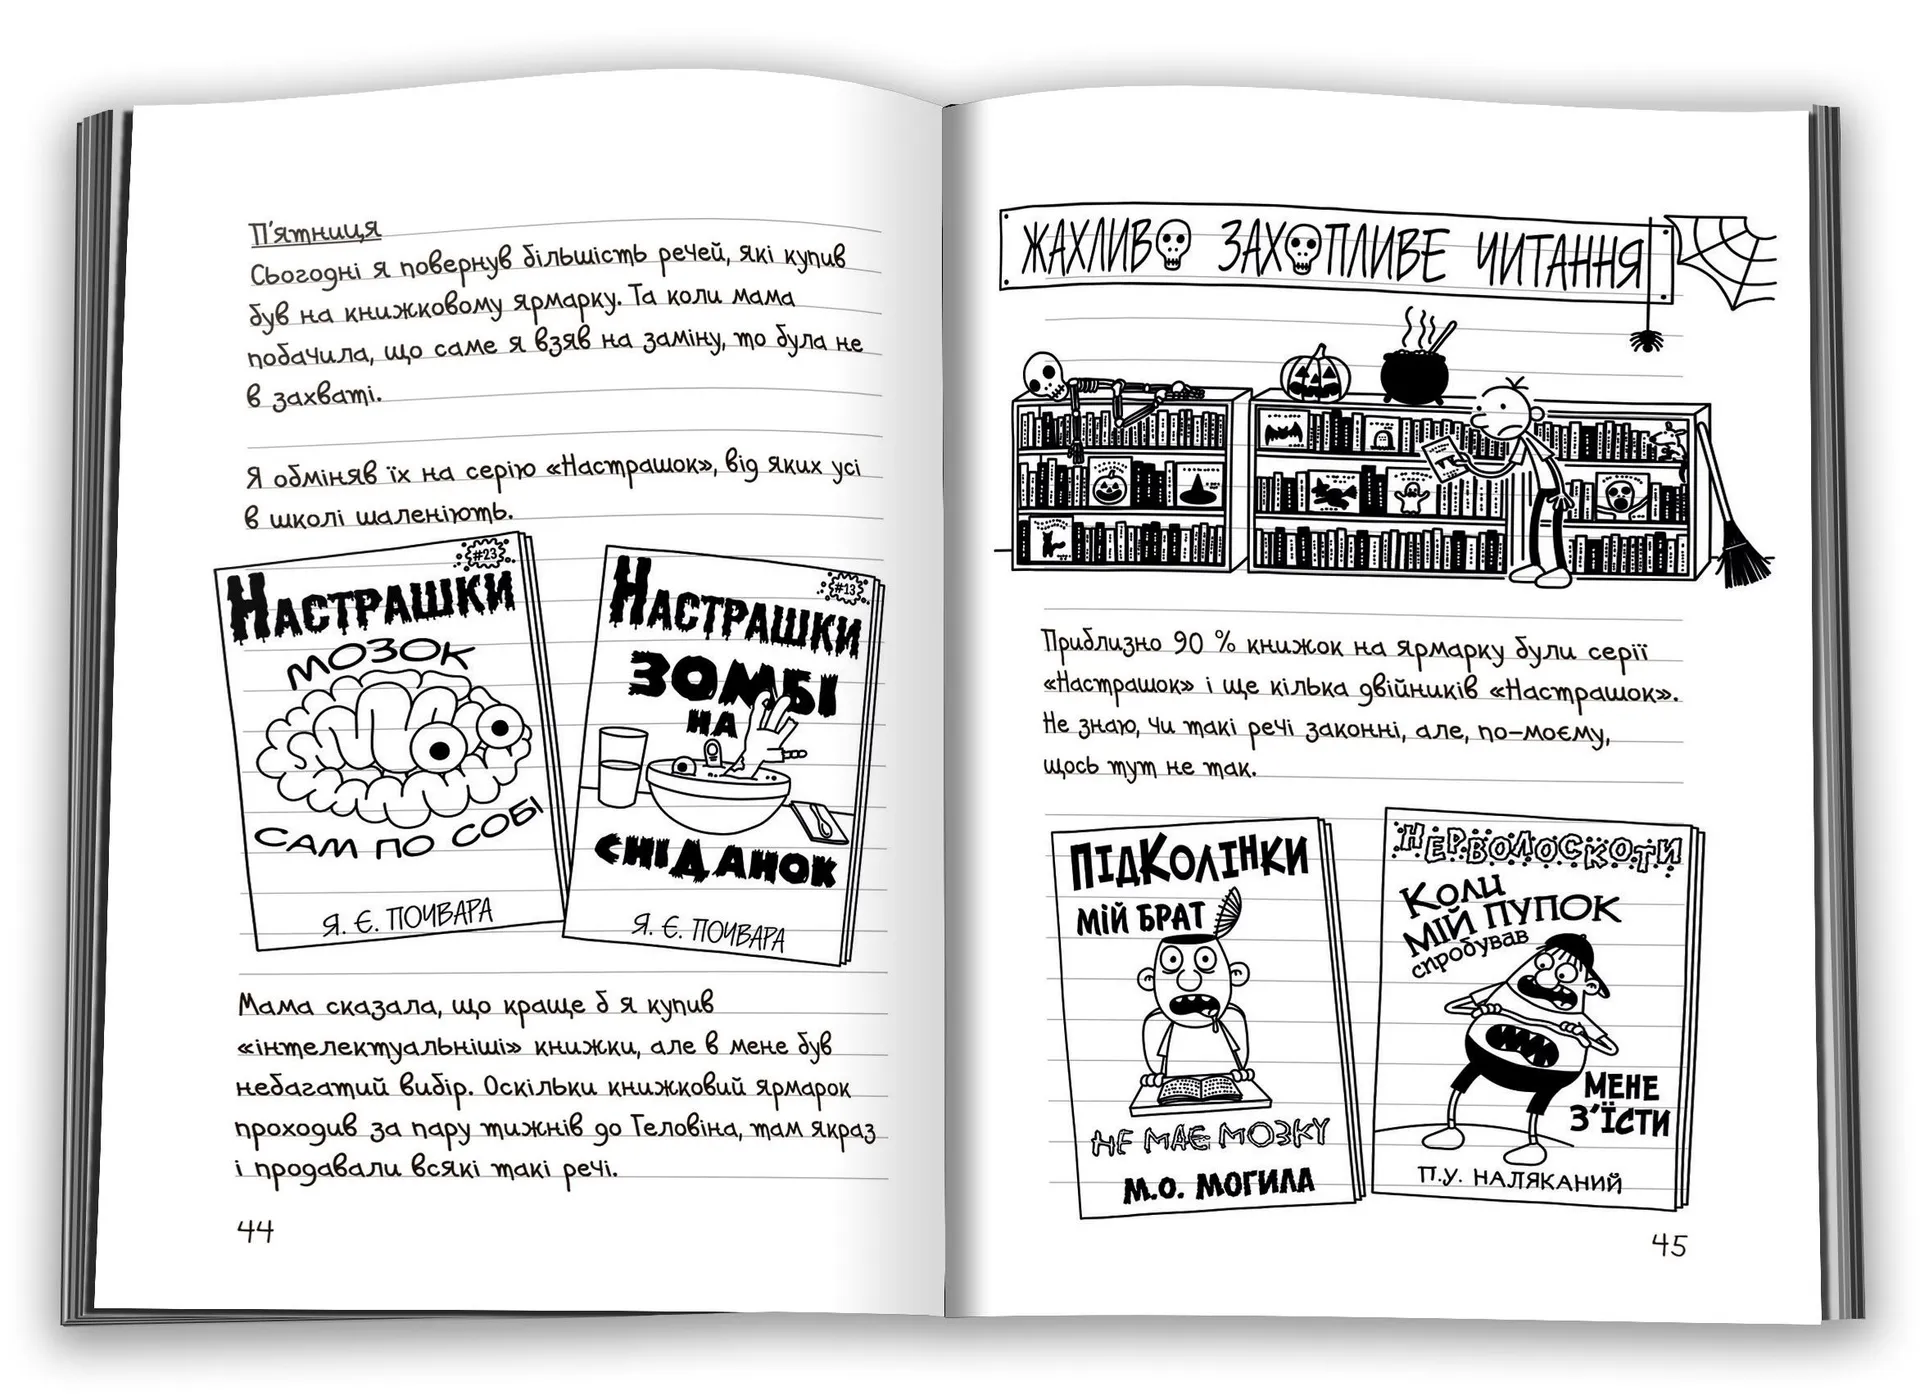 П'ятниця
Сьогодні я повернув більшість речей, які купив
був на книжковому ярмарку. Та коли мама
побачила, що саме я взяв на заміну, то була не
в захваті.
Я обміняв їх на серію «Настрашок», від яких усі
в школі шаленіють.
#23
НАСТРАШКИ
МОЗОК
САМ ПО СОБІ
Я. Є. ПОЧВАРА
#13
НАСТРАШКИ
ЗОМБІ
НА
СНІДАНОК
Я. Є. ПОЧВАРА
Мама сказала, що краще б я купив
«інтелектуальніші» книжки, але в мене був
небагатий вибір. Оскільки книжковий ярмарок
проходив за пару тижнів до Геловіна, там якраз
і продавали всякі такі речі.
44
ЖАХЛИВО ЗАХОПЛИВЕ ЧИТАННЯ
Приблизно 90 % книжок на ярмарку були серії
«Настрашок» і ще кілька двійників «Настрашок».
Не знаю, чи такі речі законні, але, по-моєму,
щось тут не так.
ПІДКОЛІНКИ
МІЙ БРАТ
НЕ МАЄ МОЗКУ
М.О. МОГИЛА
НЕРВОЛОСКОТИ
КОЛИ
МІЙ ПУПОК
спробував
МЕНЕ
З'ЇСТИ
П.У. НАЛЯКАНИЙ
45